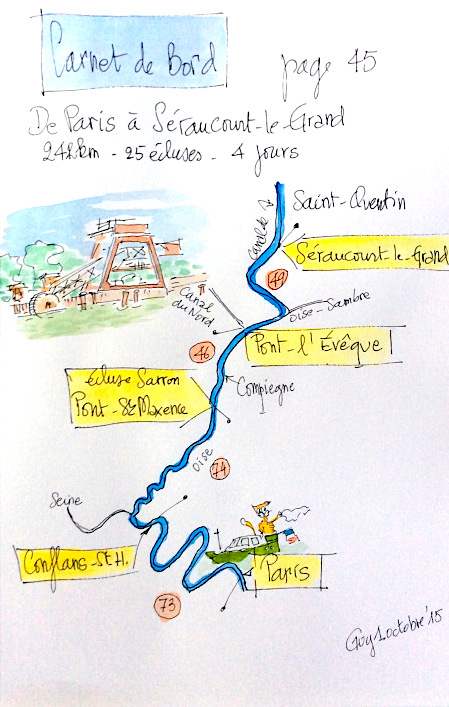 Carnet de Bord
page 45
De Paris à Séraucourt-le-Grand
242km - 25 écluses - 4 jours
Saint-Quentin
Canal de St
Séraucourt-le-Grand
49
Canal
du Nord
Oise-Sambre
Pont-l'Évêque
46
écluse Sarron
Pont-Ste Maxence
Compiègne
Oise
74
Seine
Conflans-Ste H.
Paris
73
Guy 1 octobre '15